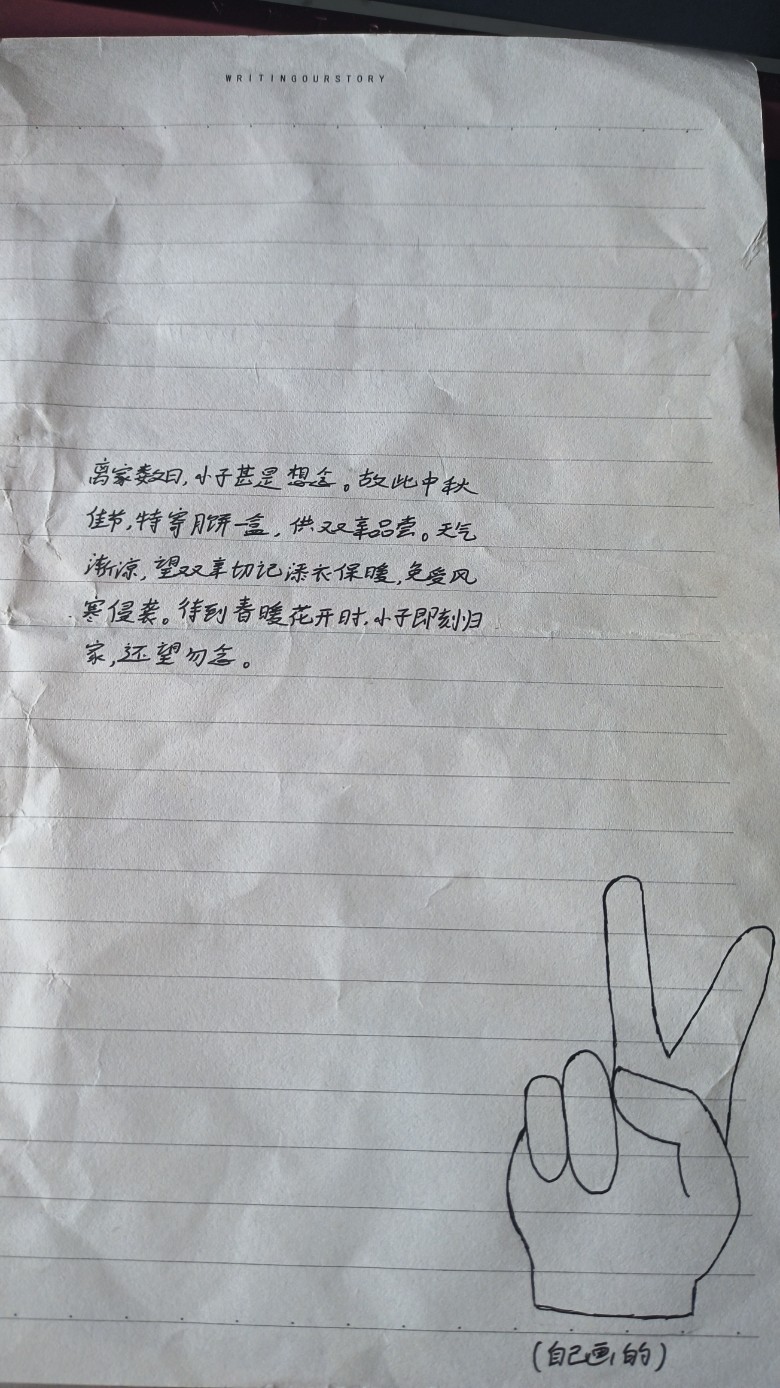 WRITINGOURSTORY
离家数日,小子甚是想念。故此中秋
佳节,特寄月饼一盒,供双亲品尝。天气
渐凉,望双亲切记添衣保暖,免受风
寒侵袭。待到春暖花开时,小子即刻归
家,还望勿念。
(自己画的)